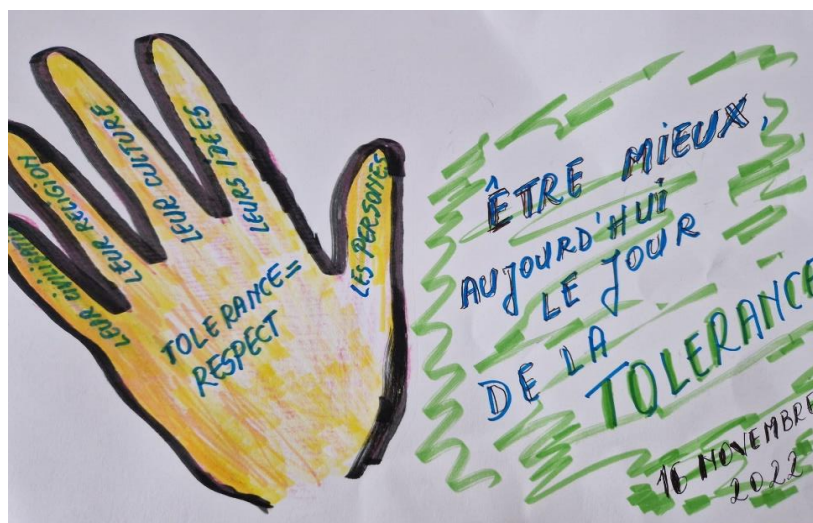 LEUR RELIGION
LEUR CULTURE
LEURS IDÉES
LES PERSONES
TOLERANCE=
RESPECT
ÊTRE MIEUX,
AUJOURD'HUI
LE JOUR
DE LA
TOLERANCE
16 NOVEMBRE
2022